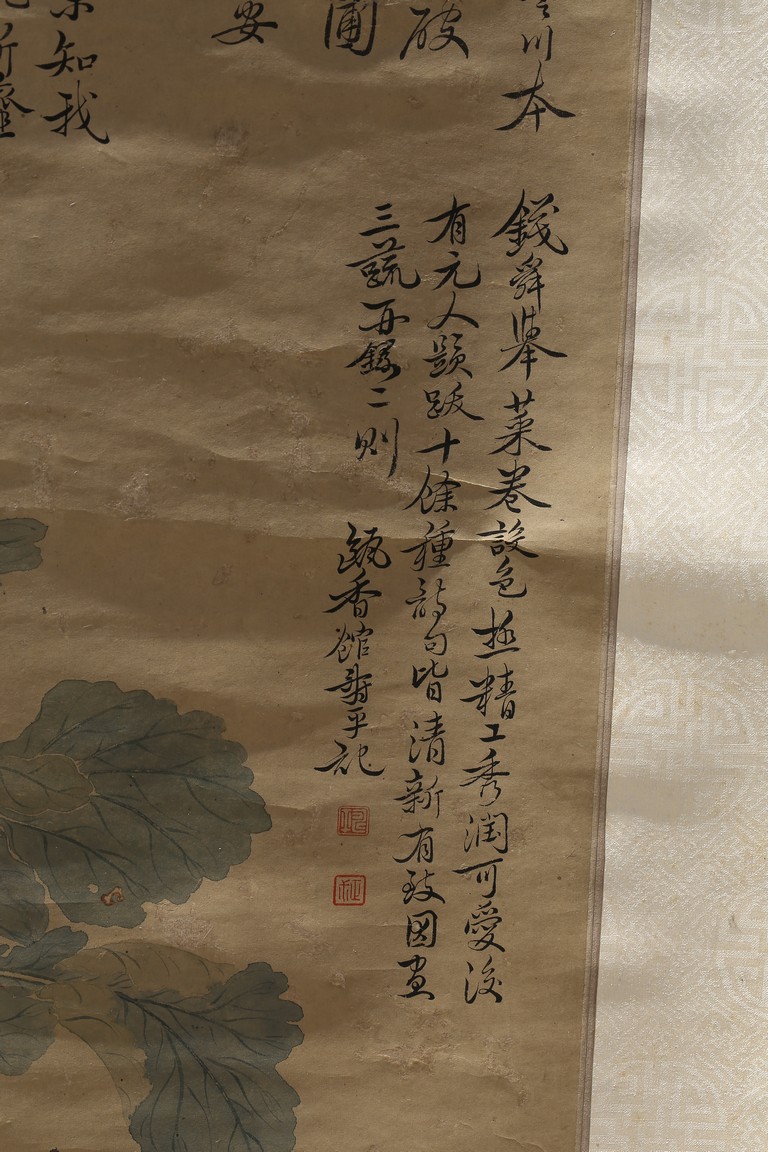 川本
破
圃
安
知我
錢舜舉菜卷設色極精工秀潤可愛後
有元人題跋十餘種詩句皆清新有致因畫
三蔬再錄二則
甌香館壽平記